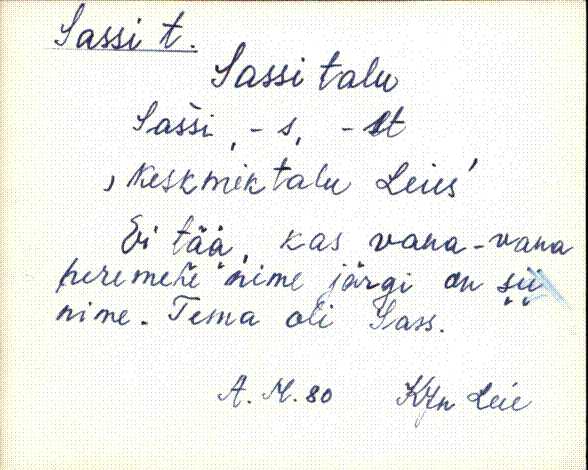 Sassi t.
Sassi talu
Sašsi, -s, -st
‚keskmik talu Leies’
Ei tää, kas vana-vana
peremehe nime järgi on sii
nime. Tema oli Sass.
A. M. 80 KJn Leie